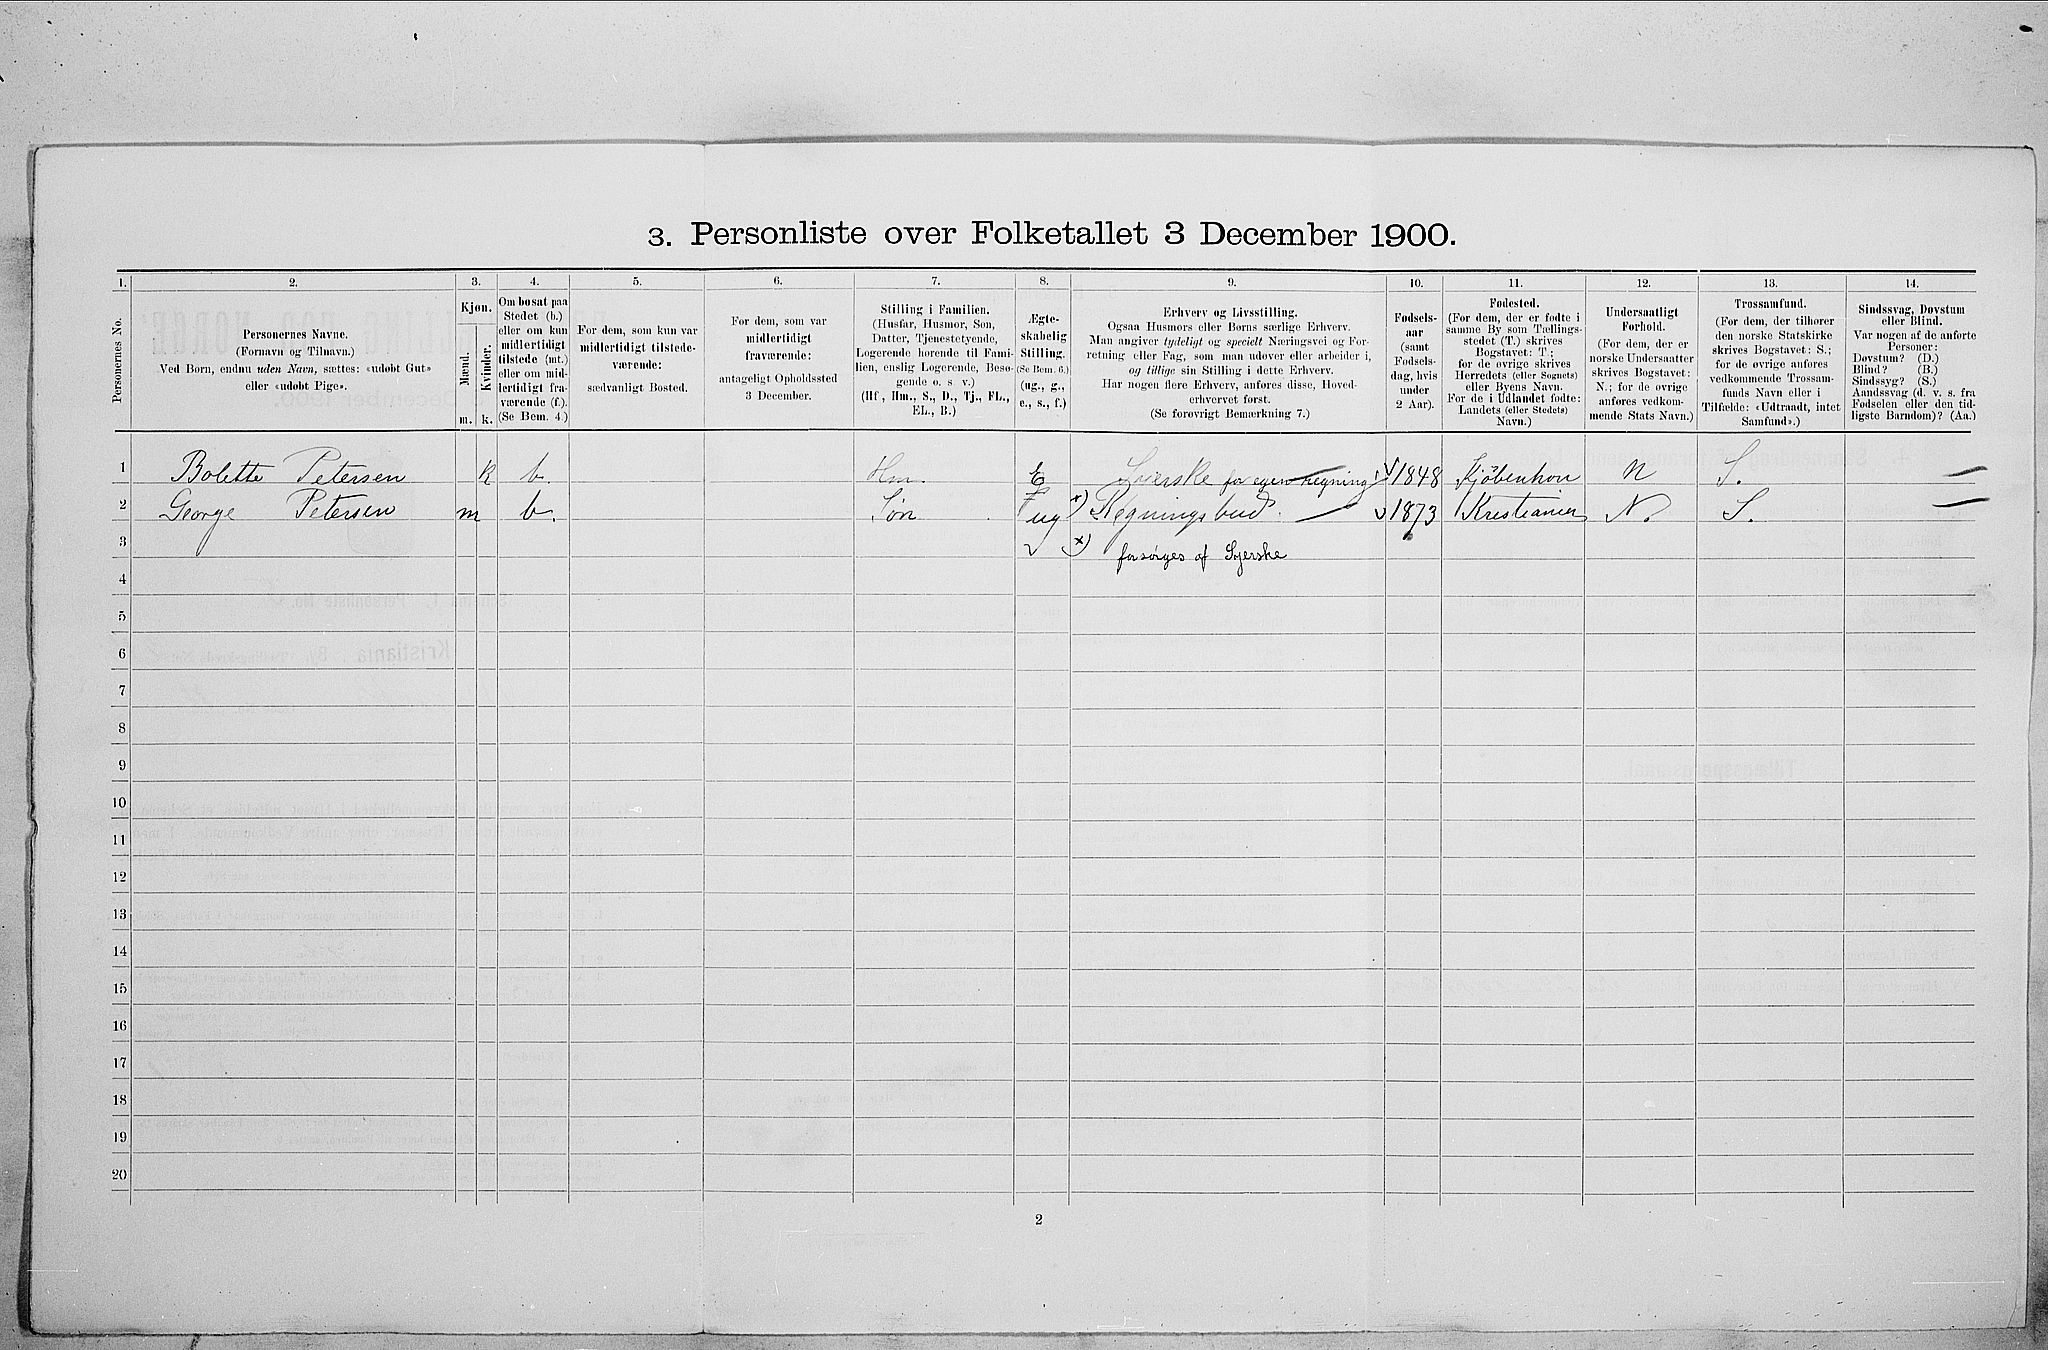 3. Personliste over Folketallet 3 December 1900.
1. 2. 3. 4. 5. 6. 7. 8. 9. 10. 11. 12. 13. 14.
Personernes No.
Personernes Navne.
(Fornavn og Tilnavn.)
Ved Børn, endnu uden Navn, sættes: «udøbt Gut»
eller «udøbt Pige».
Kjøn.
Mænd.
Kvinder.
m. k.
Om bosat paa
Stedet (b.)
eller om kun
midlertidigt
tilstede (mt.)
eller om mid-
lertidigt fra-
værende (f.).
(Se Bem. 4.)
For dem, som kun var
midlertidigt tilstede-
værende:
sædvanligt Bosted.
For dem, som var
midlertidigt
fraværende:
antageligt Opholdssted
3 December.
Stilling i Familien.
(Husfar, Husmor, Søn,
Datter, Tjenestetyende,
Logerende hørende til Fami-
lien, enslig Logerende, Besø-
gende o. s. v.)
(Hf, Hm., S., D., Tj., FL.,
EL., B.)
Ægte-
skabelig
Stilling.
(Se Bem. 6.)
(ug., g.,
e., s., f.)
Erhverv og Livsstilling.
Ogsaa Husmors eller Børns særlige Erhverv.
Man angiver tydeligt og specielt Næringsvei og For-
retning eller Fag, som man udøver eller arbeider i,
og tillige sin Stilling i dette Erhverv.
Har nogen flere Erhverv, anføres disse, Hoved-
erhvervet først.
(Se forøvrigt Bemærkning 7.)
Fødsels-
aar
(samt
Fødsels-
dag, hvis
under
2 Aar).
Fødested.
(For dem, der er fødte i
samme By som Tællings-
stedet (T.) skrives
Bogstavet: T.;
for de øvrige skrives
Herredets (eller Sognets)
eller Byens Navn.
For de i Udlandet fødte:
Landets (eller Stedets)
Navn.)
Undersaatligt
Forhold.
(For dem, der er
norske Undersaatter
skrives Bogstavet:
N.; for de øvrige
anføres vedkom-
mende Stats Navn.)
Trossamfund.
(For dem, der tilhører
den norske Statskirke
skrives Bogstavet: S.;
for de øvrige anføres
vedkommende Trossam-
funds Navn eller i
Tilfælde: «Udtraadt, intet
Samfund».)
Sindssvag, Døvstum
eller Blind.
Var nogen af de anførte
Personer:
Døvstum? (D.)
Blind? (B.)
Sindssyg? (S.)
Aandssvag (d. v. s. fra
Fødselen eller den tid-
ligste Barndom)? (Aa.)
1 Bolette Petersen k b. Hm. E Syerske for egen regning 1848 Kjøbenhavn N S. —
2 George Petersen m b. Søn ug x) Regningsbud. 1873 Kristiania N. S. —
3 x) forsørges af Syerske
4
5
6
7
8
9
10
11
12
13
14
15
16
17
18
19
20
2